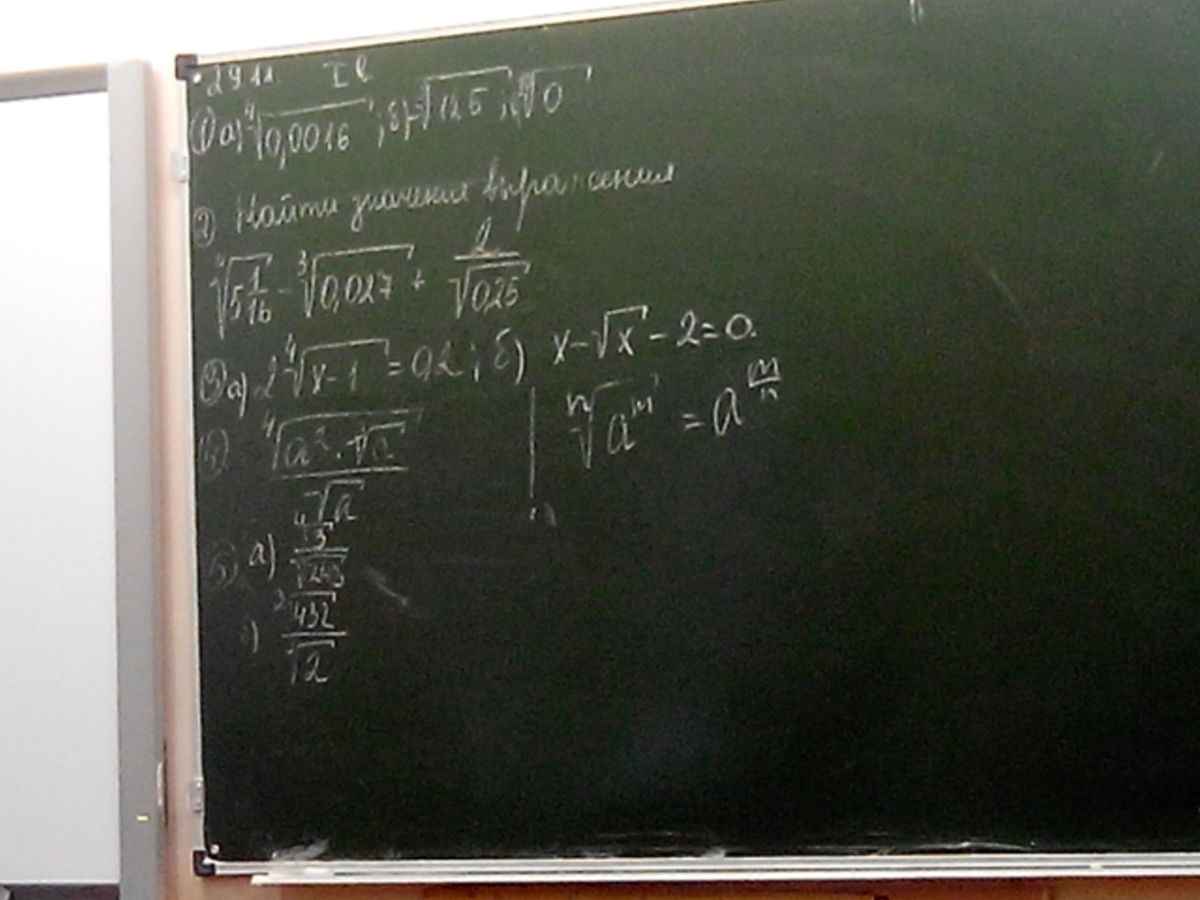 29.11 I в
① а) ⁴√0,0016; б) √125; √0
② Найти значения выражения
⁴√5 1/16 - ³√0,027 + 1/√0,25
③ а) 2 ⁴√x-1 = 0,2; б) x-√x-2=0.
⁴√a²·√a / √a | ⁿ√aᵐ = a^(m/n)
а) ⁴√3 / √243
³√432 / √2